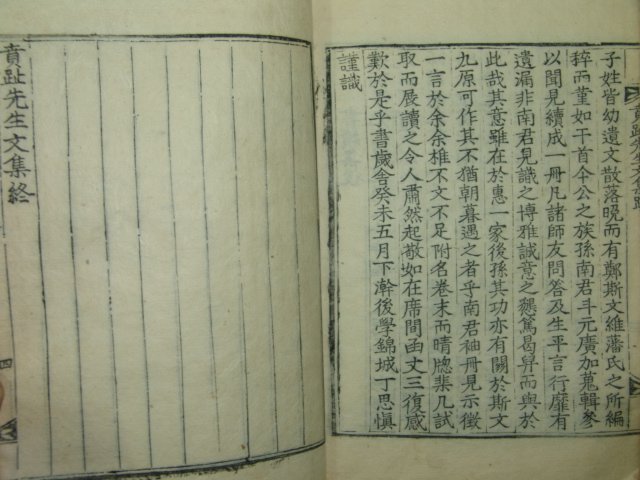 子姓皆幼遺文散落晩而有鄭斯文維藩氏之所編
稡而堇如干首今公之族孫南君斗元廣加蒐輯參
以聞見續成一冊凡諸師友問答及生平言行靡有
遺漏非南君見識之博雅誠意之懇篤曷昇而與於
此哉其意雖在於惠一家後孫其功亦有關於斯文
九原可作其不猶朝暮遇之者乎南君袖冊見示徵
一言於余余椎不文不足附名卷末而晴牕棐几試
取而展讀之令人肅然起敬如在席間函丈三復感
歎於是乎書歲舍癸未五月下澣後學錦城丁思愼
謹識
賁趾先生文集終
四